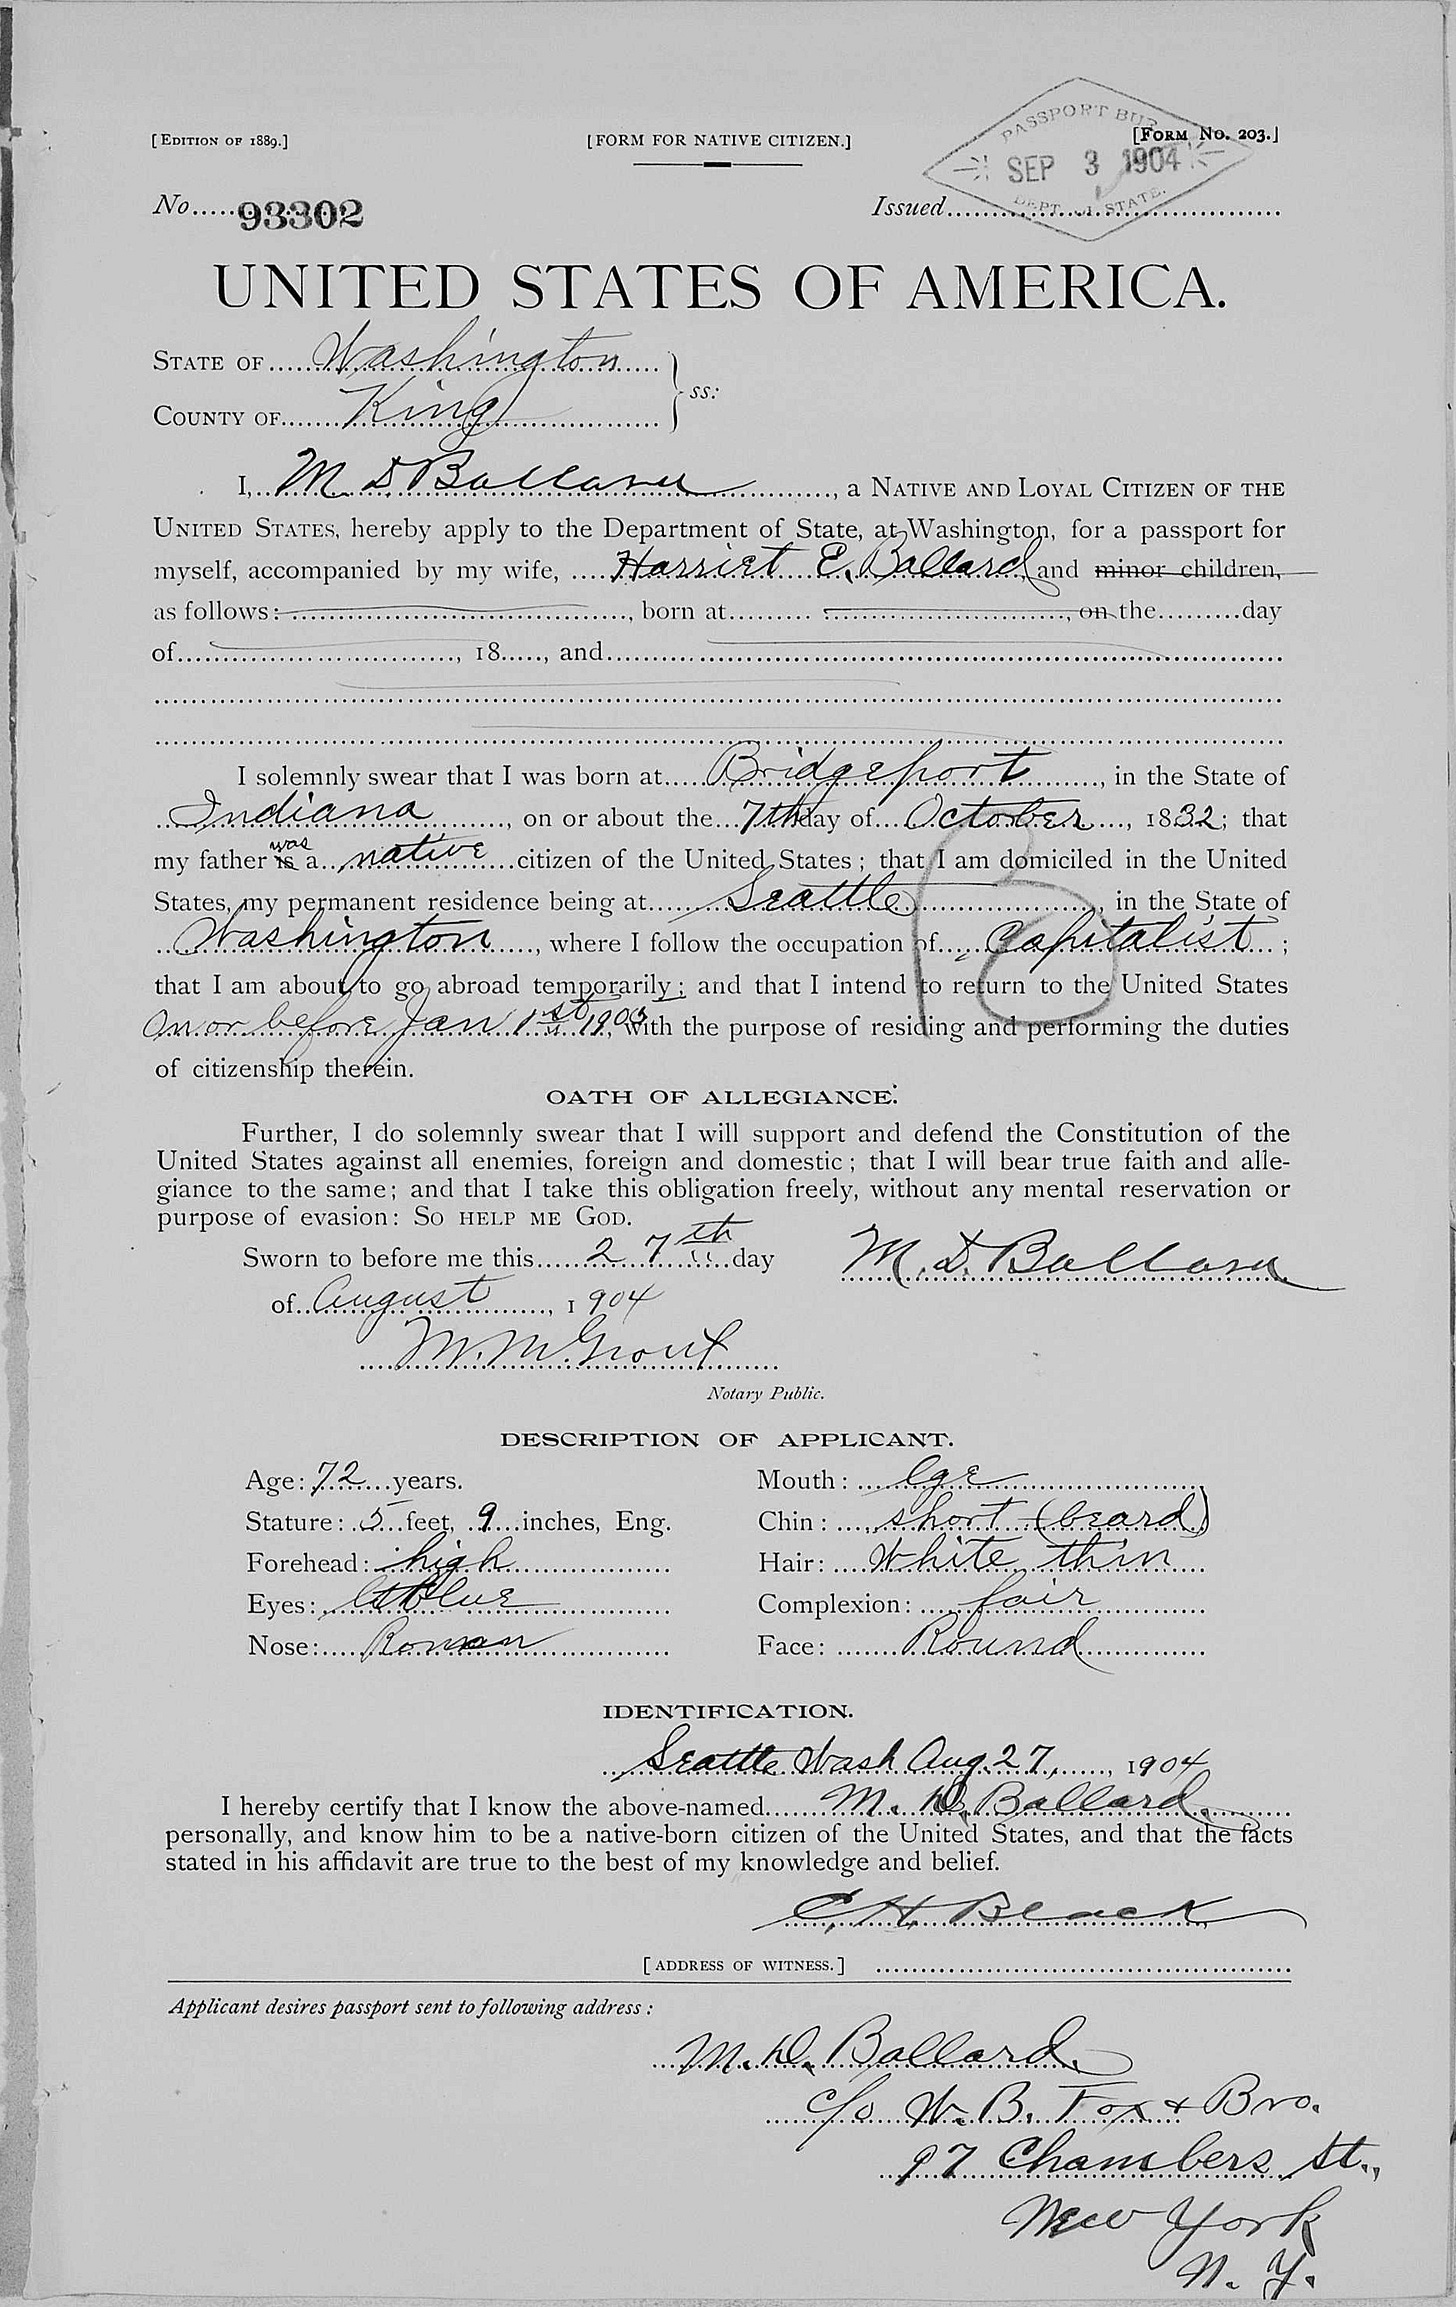 [EDITION OF 1889.] [FORM FOR NATIVE CITIZEN.] [FORM No. 203.]
PASSPORT BUR
SEP 3 1904
DEPT. STATE.
No. 93302 Issued
UNITED STATES OF AMERICA.
STATE OF Washington
COUNTY OF King ss:
I, M. D Ballard, a NATIVE AND LOYAL CITIZEN OF THE
UNITED STATES, hereby apply to the Department of State, at Washington, for a passport for
myself, accompanied by my wife, Harriet E. Ballard, and minor children,
as follows: , born at , on the day
of , 18 , and
I solemnly swear that I was born at Bridgeport, in the State of
Indiana, on or about the 7th day of October, 1832; that
my father is was a native citizen of the United States; that I am domiciled in the United
States, my permanent residence being at Seattle, in the State of
Washington, where I follow the occupation of Capitalist;
that I am about to go abroad temporarily; and that I intend to return to the United States
On or before Jan 1st 190 , with the purpose of residing and performing the duties
of citizenship therein.
B
OATH OF ALLEGIANCE.
Further, I do solemnly swear that I will support and defend the Constitution of the
United States against all enemies, foreign and domestic; that I will bear true faith and alle-
giance to the same; and that I take this obligation freely, without any mental reservation or
purpose of evasion: SO HELP ME GOD.
Sworn to before me this 27th day M. D. Ballard
of August, 1904
Notary Public.
DESCRIPTION OF APPLICANT.
Age: 72 years. Mouth: lge
Stature: 5 feet, 9 inches, Eng. Chin: short (beard)
Forehead: high Hair: White thin
Eyes: Lt Blue Complexion: fair
Nose: Roman Face: Round
IDENTIFICATION.
Seattle Wash Aug. 27, 1904
I hereby certify that I know the above-named M. D. Ballard
personally, and know him to be a native-born citizen of the United States, and that the facts
stated in his affidavit are true to the best of my knowledge and belief.
C. H. Black
[ADDRESS OF WITNESS.]
Applicant desires passport sent to following address:
M. D. Ballard.
c/o W. B. Fox & Bro.
97 Chambers St.,
New York
N. Y.